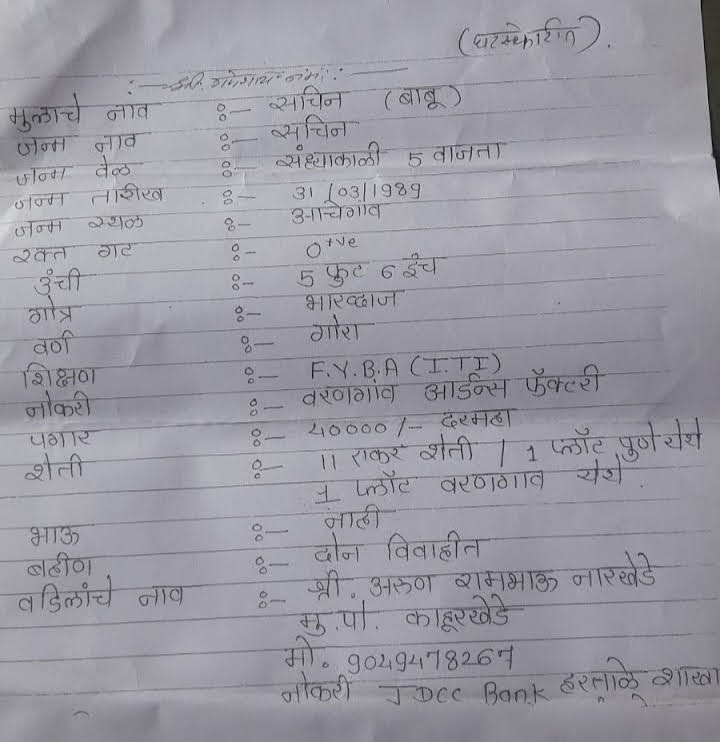 (घटस्फोटीत).
:— श्री. गणेशाय नमः :—
मुलाचे नाव :— सचिन (बाबू)
जन्म नाव :— सचिन
जन्म वेळ :— संध्याकाळी 5 वाजता
जन्म तारीख :— 31/03/1989
जन्म स्थळ :— आचेगाव
रक्त गट :— O+ve
उंची :— 5 फुट 6 इंच
गोत्र :— भारव्दाज
वर्ण :— गोरा
शिक्षण :— F.Y.B.A (I.T.I)
नोकरी :— वरणगांव आर्डनन्स फॅक्टरी
पगार :— 40000/- दरमहा
शेती :— 11 एकर शेती / 1 प्लॉट पुणे येथे
1 प्लॉट वरणगाव येथे.
भाऊ :— नाही
बहीण :— दोन विवाहीत
वडिलांचे नाव :— श्री. अरुण रामभाऊ नारखेडे
मु.पो. काहूरखेडे
मो. 9049478267
नोकरी JDCC Bank हरताळे शाखा